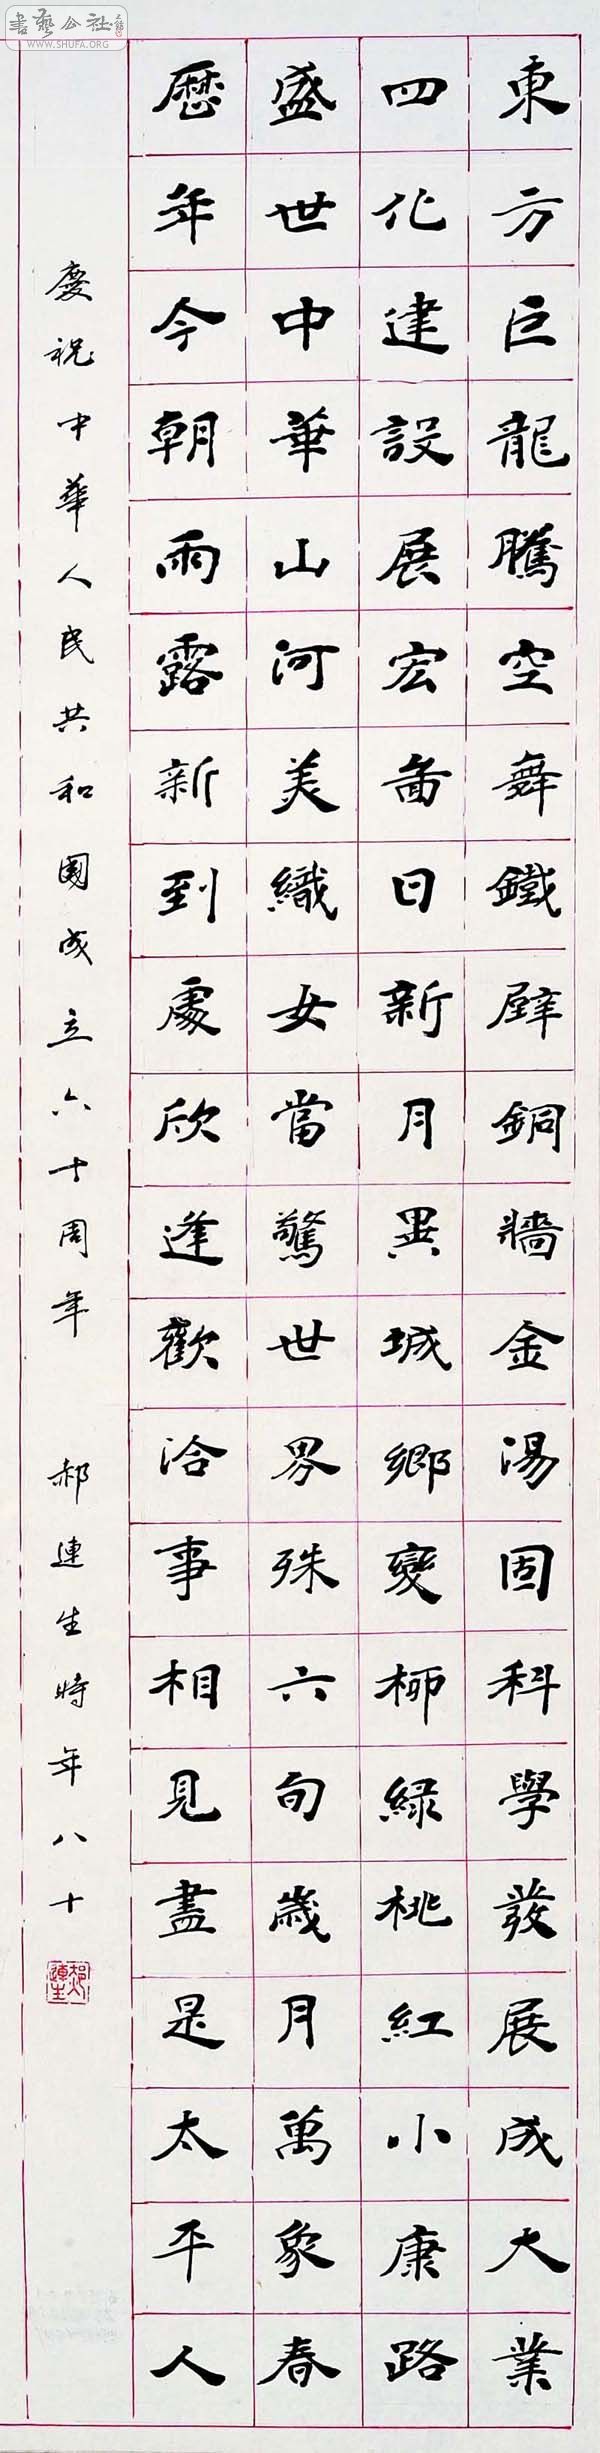 東方巨龍騰空舞鐵壁銅牆金湯固科學發展成大業
四化建設展宏圖日新月異城鄉變柳綠桃紅小康路
盛世中華山河美織女當驚世界殊六旬歲月萬象春
歷年今朝雨露新到處欣逢歡洽事相見盡是太平人
慶祝中華人民共和國成立六十周年 郝連生時年八十
郝連生
書藝公社
WWW.SHUFA.ORG